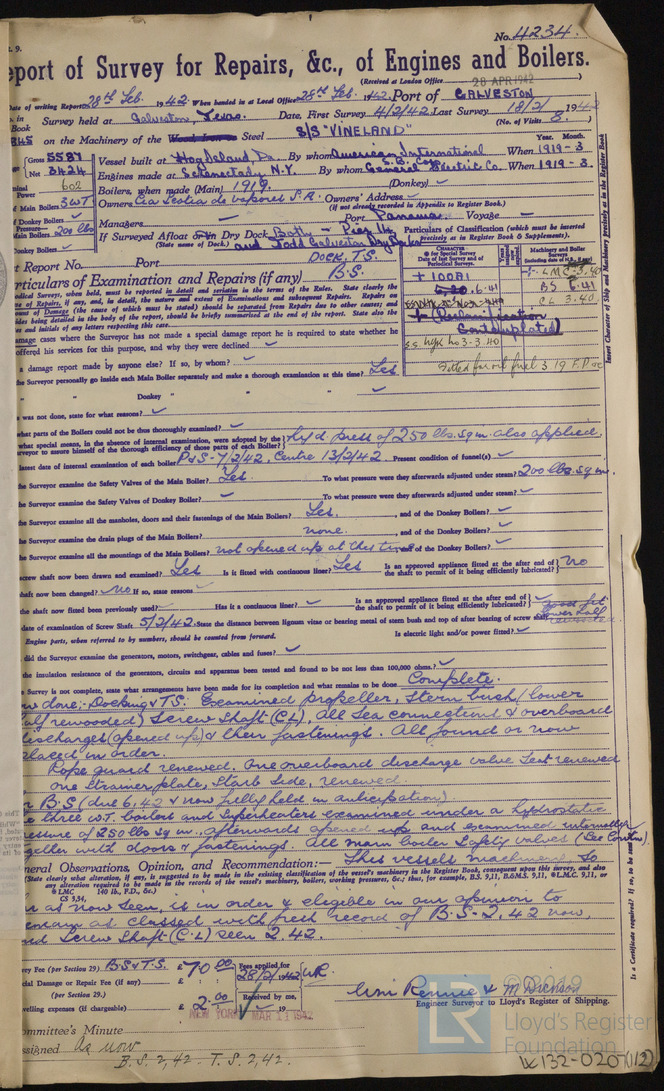 t. 9.
No. 4234.
eport of Survey for Repairs, &c., of Engines and Boilers.
(Received at London Office 28 APR 1942 )
Date of writing Report 28th Feb. 1942. When handed in at Local Office 28th Feb. 1942 Port of GALVESTON
Survey held at Galveston, Texas. Date, First Survey 4/2/42 Last Survey 18/2/ 1942
Book (No. of Visits 8. )
on the Machinery of the Wood, Iron or Steel S/S "VINELAND"
Gross 5587 Vessel built at Hog Island, Pa. By whom American International S.B. Corp. When 1919-3
Net 3424
Year. Month.
602 Engines made at Schenectady N.Y. By whom General Electric Co. When 1919-3.
Power Boilers, when made (Main) 1919. (Donkey)
Main Boilers 3WT Owners Cia de vapores S.A. Owners' Address
(if not already recorded in Appendix to Register Book.)
Donkey Boilers
Managers Port Panama Voyage
Main Boilers 200 lbs If Surveyed Afloat or in Dry Dock Both - Pier 14 and Todd Galveston Dry Docks
(State name of Dock.)
Donkey Boilers
Particulars of Classification (which must be inserted precisely as in Register Book & Supplements).
t Report No. Port DOCK, T.S. B.S.
CHARACTER
Machinery and Boiler Surveys
+ 100A1
+ LMC-3.40
6.41
BS 6.41
CL 3.40
(Reclassification Contemplated)
S.S. No 3-3.40
Fitted for oil fuel 3 19 F.P.
rticulars of Examination and Repairs (if any)
amage cases where the Surveyor has not made a special damage report he is required to state whether he
offered his services for this purpose, and why they were declined
a damage report made by anyone else? If so, by whom?
he Surveyor personally go inside each Main Boiler separately and make a thorough examination at this time? Yes
" " Donkey " " "
was not done, state for what reasons?
what parts of the Boilers could not be thus thoroughly examined?
what special means, in the absence of internal examination, were adopted by the Surveyor to assure himself of the thorough efficiency of those parts of each Boiler? Hyd press of 250 lbs. sq in. also applied.
latest date of internal examination of each boiler P&S-7/2/42. Centre 13/2/42 Present condition of funnel(s)
the Surveyor examine the Safety Valves of the Main Boiler? Yes To what pressure were they afterwards adjusted under steam? 200 lbs. sq in.
the Surveyor examine the Safety Valves of Donkey Boiler? To what pressure were they afterwards adjusted under steam?
the Surveyor examine all the manholes, doors and their fastenings of the Main Boilers? Yes. , and of the Donkey Boilers?
the Surveyor examine the drain plugs of the Main Boilers? none. , and of the Donkey Boilers?
he Surveyor examine all the mountings of the Main Boilers? not opened up at this time of the Donkey Boilers?
screw shaft now been drawn and examined? Yes Is it fitted with continuous liner? Yes Is an approved appliance fitted at the after end of the shaft to permit of it being efficiently lubricated? No
shaft now been changed? No If so, state reasons
the shaft now fitted been previously used? Has it a continuous liner? Is an approved appliance fitted at the after end of the shaft to permit of it being efficiently lubricated?
date of examination of Screw Shaft 5/2/42. State the distance between lignum vitae or bearing metal of stern bush and top of after bearing of screw shaft good fit lower half rewooded.
Engine parts, when referred to by numbers, should be counted from forward. Is electric light and/or power fitted?
did the Surveyor examine the generators, motors, switchgear, cables and fuses?
the insulation resistance of the generators, circuits and apparatus been tested and found to be not less than 100,000 ohms?
e Survey is not complete, state what arrangements have been made for its completion and what remains to be done Complete.
w done:- Docking & T.S. Examined propeller, Stern bush (lower
alf rewooded) Screw Shaft (CL), all Sea connections & overboard
discharges (opened up) & their fastenings. All found or now
placed in order.
Rope guard renewed. One overboard discharge valve Seat renewed
one Strainer plate, Starb side, renewed.
B.S (due 6,42 & now fully held in anticipation)
three W.T. boilers and Superheaters examined under a hydrostatic
essure of 250 lbs sq in. afterwards opened up and examined internally
gether with doors & fastenings. All main boiler Safety valves (See Contn).
neral Observations, Opinion, and Recommendation:— This vessels machinery, so
(State clearly what alteration, if any, is suggested to be made in the existing classification of the vessel's machinery in the Register Book, consequent upon this survey, and also
any alteration required to be made in the records of the vessel's machinery, boilers, working pressures, &c.; thus, for example, B.S. 9,11, B.&M.S. 9,11, LMC. 9,11, or
LMC 140 lb., F.D., &c.)
CS 9,34,
r as now seen, is in order & eligible in our opinion to
remain as classed with fresh record of B.S-2,42 now,
nd Screw Shaft (C.L) seen 2.42.
vey Fee (per Section 29) B.S&T.S. £ 70.00 Fees applied for 28/2/1942
ial Damage or Repair Fee (if any) £
(per Section 29.)
Received by me,
velling expenses (if chargeable) £ 2.00 19
Rennie & M Dickson
Engineer Surveyor to Lloyd's Register of Shipping.
NEW YORK MAR 11 1942
ommittee's Minute
ssigned As now
B.S. 2,42 - T.S. 2,42.
Insert Character of Ship and Machinery precisely as in the Register Book
Is a Certificate required? If so, to be
© 2019
LR
Lloyd's Register
Foundation
W132-0207(1/2)